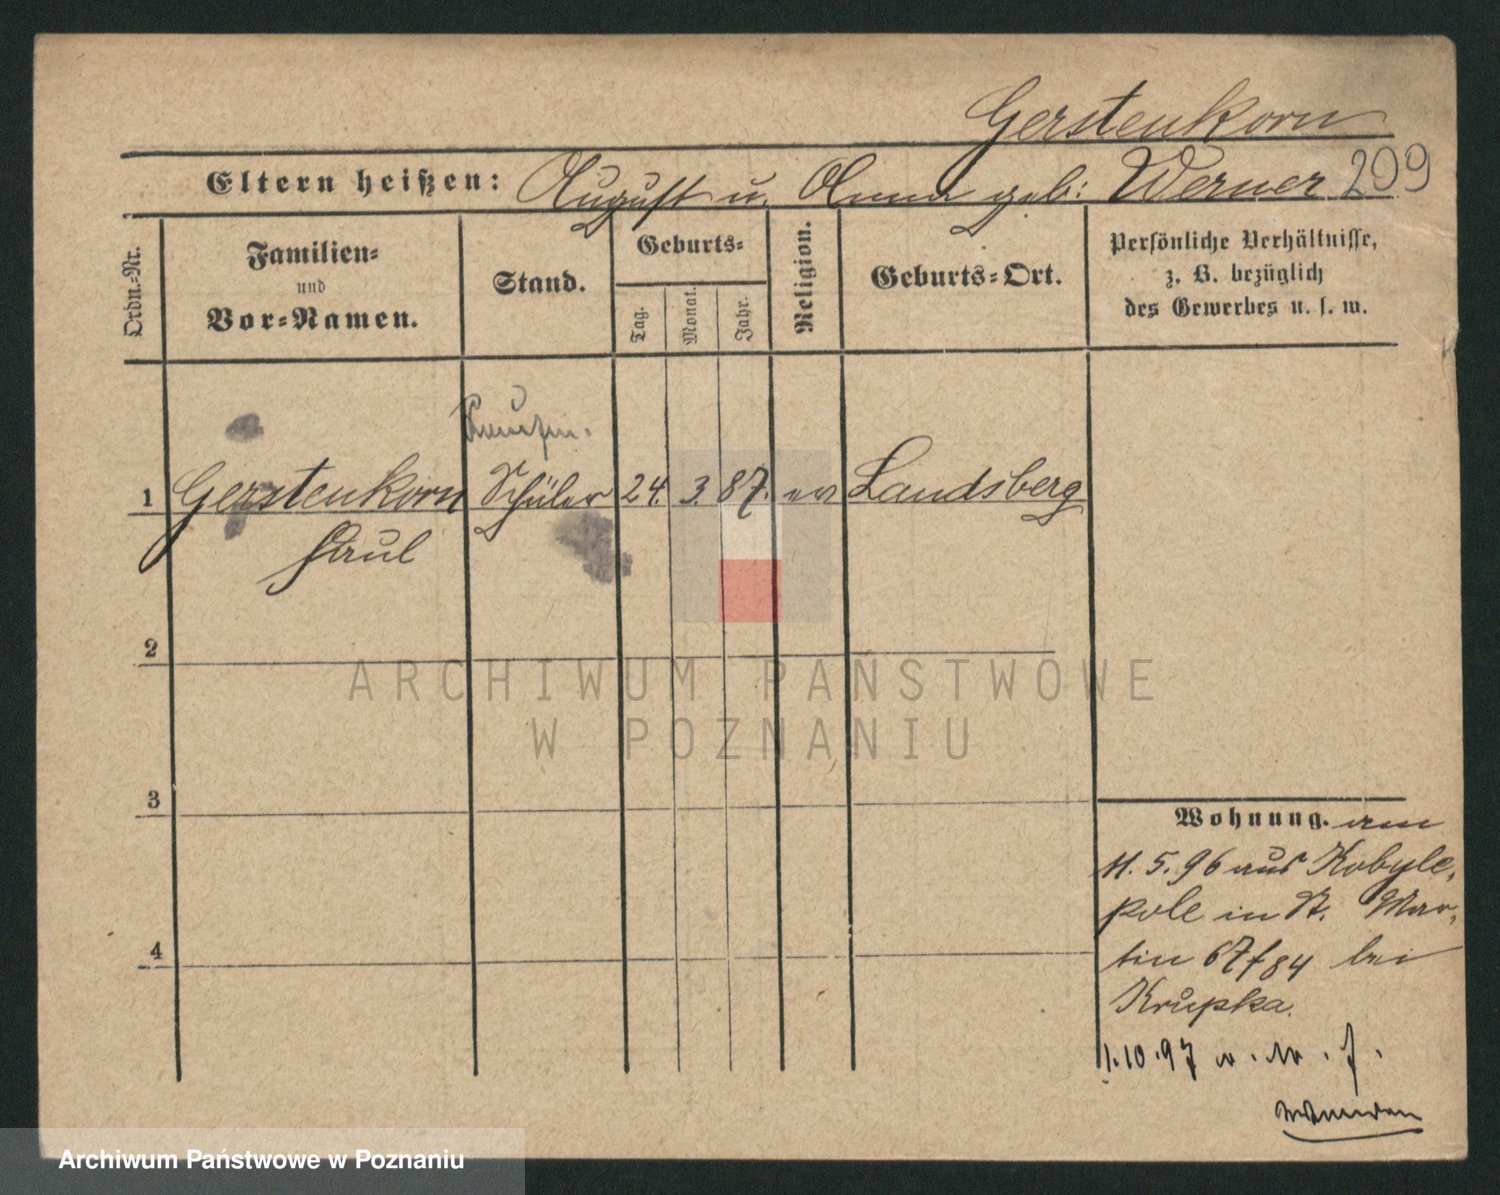 Gerstenkorn
Eltern heißen: August u. Anna geb: Werner 209
Ordn.=Nr.
Familien=
und
Vor=Namen.
Stand.
Geburts=
Tag.
Monat.
Jahr.
Religion.
Geburts=Ort.
Persönliche Verhältnisse,
z. B. bezüglich
des Gewerbes u. s. w.
Preußen.
1 Gerstenkorn Schüler 24. 3. 87. ev Landsberg
Paul
2
3
4
Wohnung. am
11. 5. 96 aus Kobyle-
pole in St. Mar-
tin 67 f 84 bei
Krupka.
1.10.97
ARCHIWUM PAŃSTWOWE
W POZNANIU
Archiwum Państwowe w Poznaniu